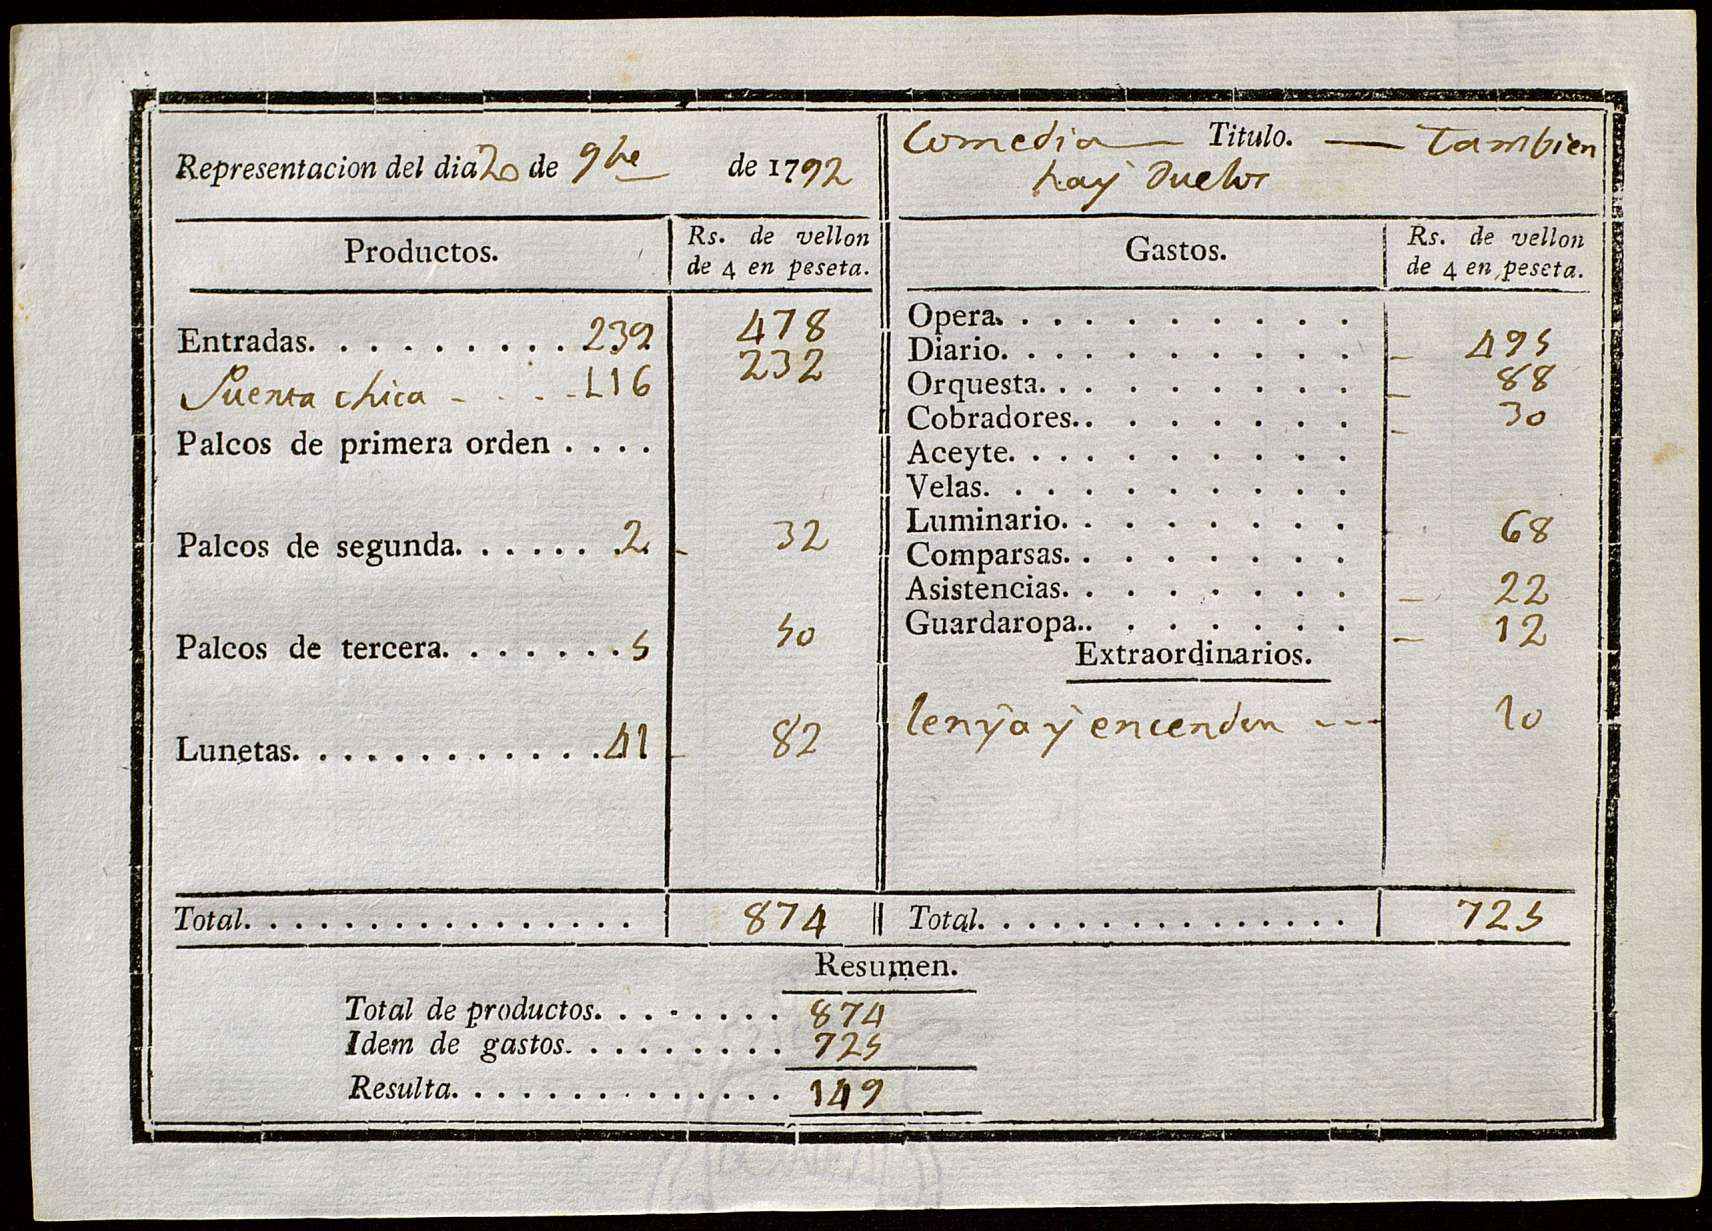 Representacion del dia 20 de 9bre de 1792
Comedia — Titulo. — Tambien
hay Duelos
Productos.
Rs. de vellon
de 4 en peseta.
Entradas. . . . . . . . . . 239 478
Puerta chica - . . . - 116 232
Palcos de primera orden . . . .
Palcos de segunda. . . . . . . 2. - 32
Palcos de tercera. . . . . . . . 5 50
Lunetas. . . . . . . . . . . . . 41 - 82
Total. . . . . . . . . . . . . . . . 874
Gastos.
Rs. de vellon
de 4 en peseta.
Opera. . . . . . . . . .
Diario. . . . . . . . . . - 495
Orquesta. . . . . . . . . - 88
Cobradores. . . . . . . . - 30
Aceyte. . . . . . . . . .
Velas. . . . . . . . . .
Luminario. . . . . . . . 68
Comparsas. . . . . . . .
Asistencias. . . . . . . . - 22
Guardaropa. . . . . . . . - 12
Extraordinarios.
lenÿa ÿ encendor --- 10
Total. . . . . . . . . . . . . . . 725
Resumen.
Total de productos. . . . . . . . 874
Idem de gastos. . . . . . . . . 725
Resulta. . . . . . . . . . . . . . 149